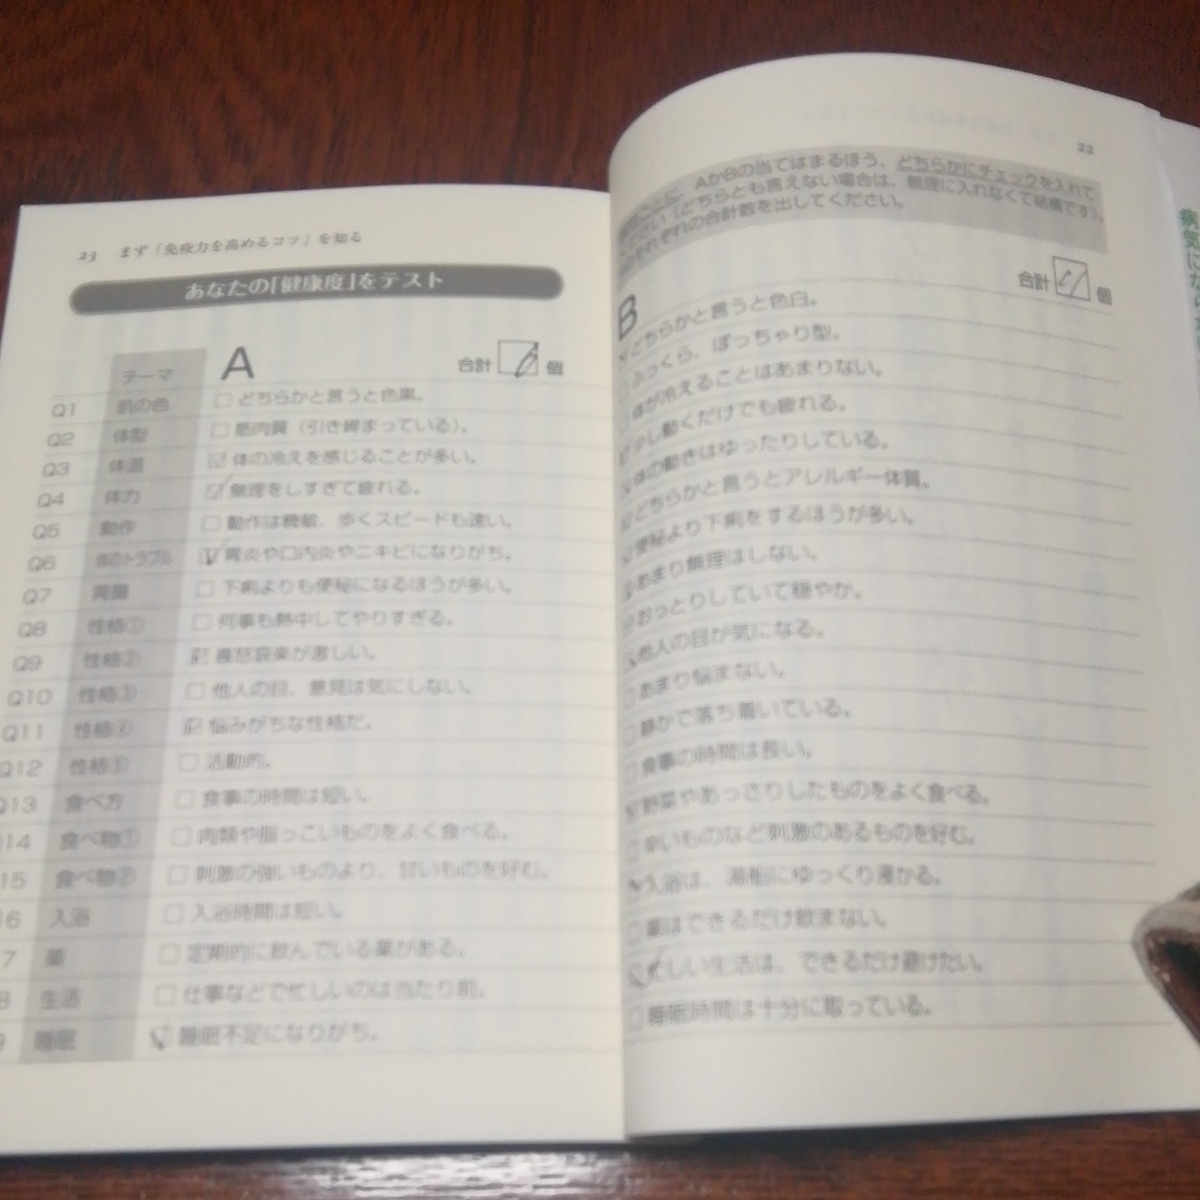 23 まず「免疫力を高めるコツ」を知る
あなたの「健康度」をテスト
テーマ
A
合計
個
Q1 肌の色 □どちらかと言うと色黒。
Q2 体型 □筋肉質(引き締まっている)。
Q3 体温 ☑体の冷えを感じることが多い。
Q4 体力 ☑無理をしすぎて疲れる。
Q5 動作 □動作は機敏、歩くスピードも速い。
Q6 体のトラブル ☑胃炎や口内炎やニキビになりがち。
Q7 胃腸 □下痢よりも便秘になるほうが多い。
Q8 性格① □何事も熱中してやりすぎる。
Q9 性格② ☑喜怒哀楽が激しい。
Q10 性格③ □他人の目、意見は気にしない。
Q11 性格④ ☑悩みがちな性格だ。
Q12 性格⑤ □活動的。
Q13 食べ方 □食事の時間は短い。
14 食べ物① □肉類や脂っこいものをよく食べる。
15 食べ物② □刺激の強いものより、甘いものを好む。
16 入浴 □入浴時間は短い。
7 薬 □定期的に飲んでいる薬がある。
8 生活 □仕事などで忙しいのは当たり前。
9 睡眠 ☑睡眠不足になりがち。
22
ごとに、AかBの当てはまるほう、どちらかにチェックを入れて
ください(どちらとも言えない場合は、無理に入れなくて結構です)。
それぞれの合計数を出してください。
B
合計
個
どちらかと言うと色白。
ふっくら、ぽっちゃり型。
体が冷えることはあまりない。
少し動くだけでも疲れる。
体の動きはゆったりしている。
どちらかと言うとアレルギー体質。
便秘より下痢をするほうが多い。
あまり無理はしない。
おっとりしていて穏やか。
他人の目が気になる。
□あまり悩まない。
□静かで落ち着いている。
□食事の時間は長い。
☑野菜やあっさりしたものをよく食べる。
□辛いものなど刺激のあるものを好む。
☑入浴は、湯船にゆっくり浸かる。
□薬はできるだけ飲まない。
☑忙しい生活は、できるだけ避けたい。
□睡眠時間は十分に取っている。
病気に